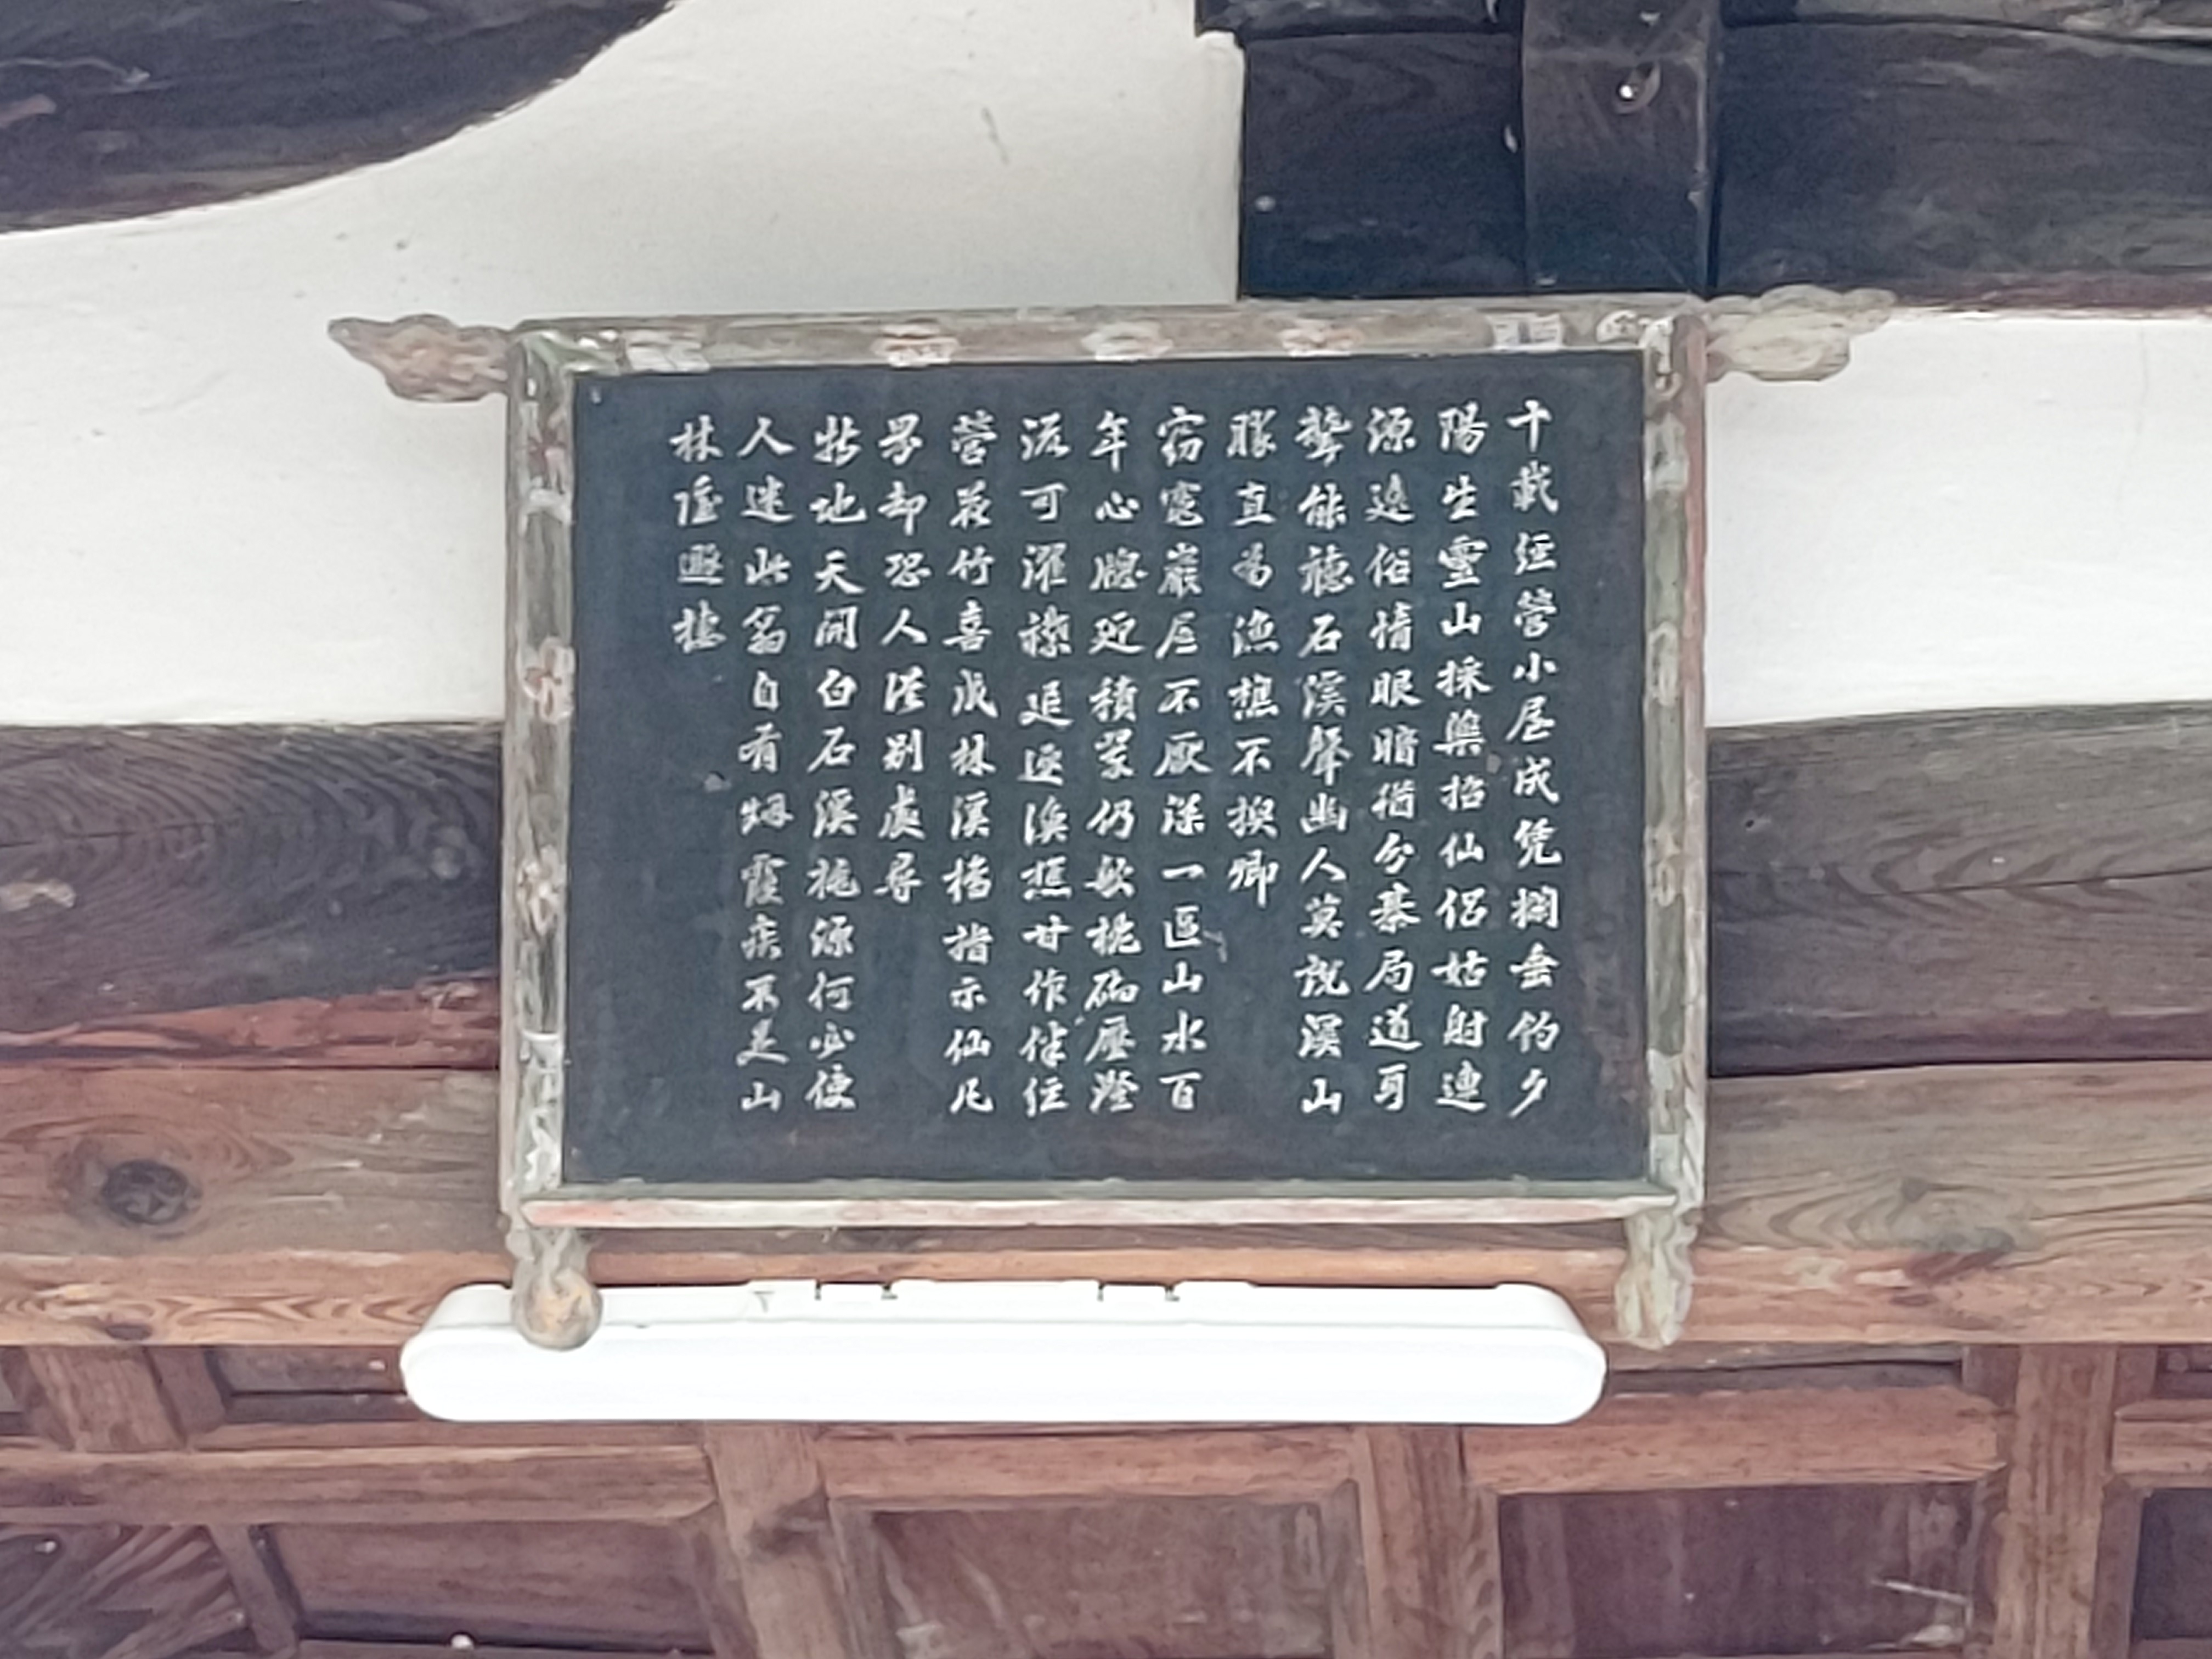 十載經營小屋成凭欄垂釣夕
陽生靈山採藥招仙侶姑射連
源遠俗情眼暗猶分棊局道耳
聾能聽石溪聲幽人莫說溪山
勝直爲漁樵不換卿
窈窕巖居不厭深一區山水百
年心牕迎積翠仍欹枕砌壓澄
流可濯襟追逐漁樵甘作伴經
營花竹喜成林溪橋指示仙凡
界却恐人從別處尋
此地天開白石溪桃源何必使
人迷此翁自有烟霞疾不是山
林隱遯棲